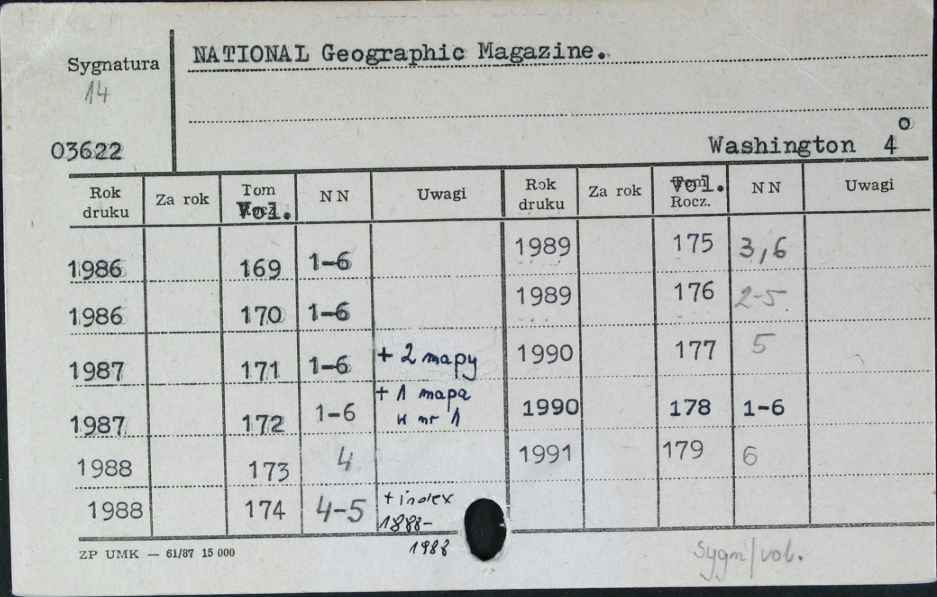 Sygnatura
14
03622
NATIONAL Geographic Magazine.
Washington 4°
Rok druku Za rok Tom Vol. NN Uwagi Rok druku Za rok Vol. Rocz. NN Uwagi
1986 169 1-6 1989 175 3,6
1986 170 1-6 1989 176 2-5
1987 171 1-6 + 2 mapy 1990 177 5
1987 172 1-6 + 1 mapa w nr 1 1990 178 1-6
1988 173 4 1991 179 6
1988 174 4-5 + index 1888-1988
ZP UMK — 61/87 15 000
Sygn/vol.